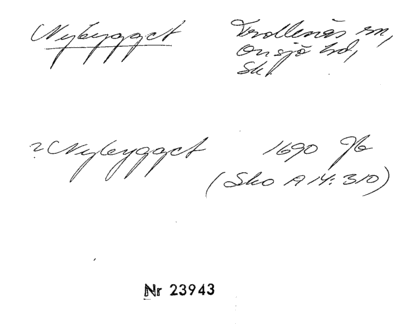 Nybygget Trollenäs sn,
Onsjö hd,
Sk.
? Nybygget 1690 Jb
(Sko A 14:310)
Nr 23943